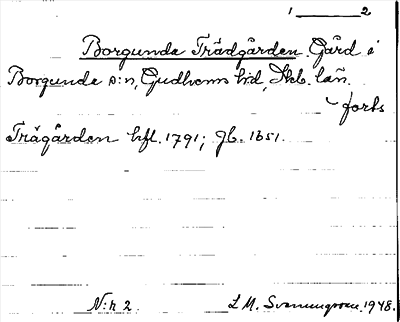 1 2
Borgunda Trädgården. Gård i
Borgunda s:n, Gudhems h:d, Skb. län.
forts
Trägården hfl. 1791; Jb. 1651.
N:r 2. L. M. Svanungsson. 1948.